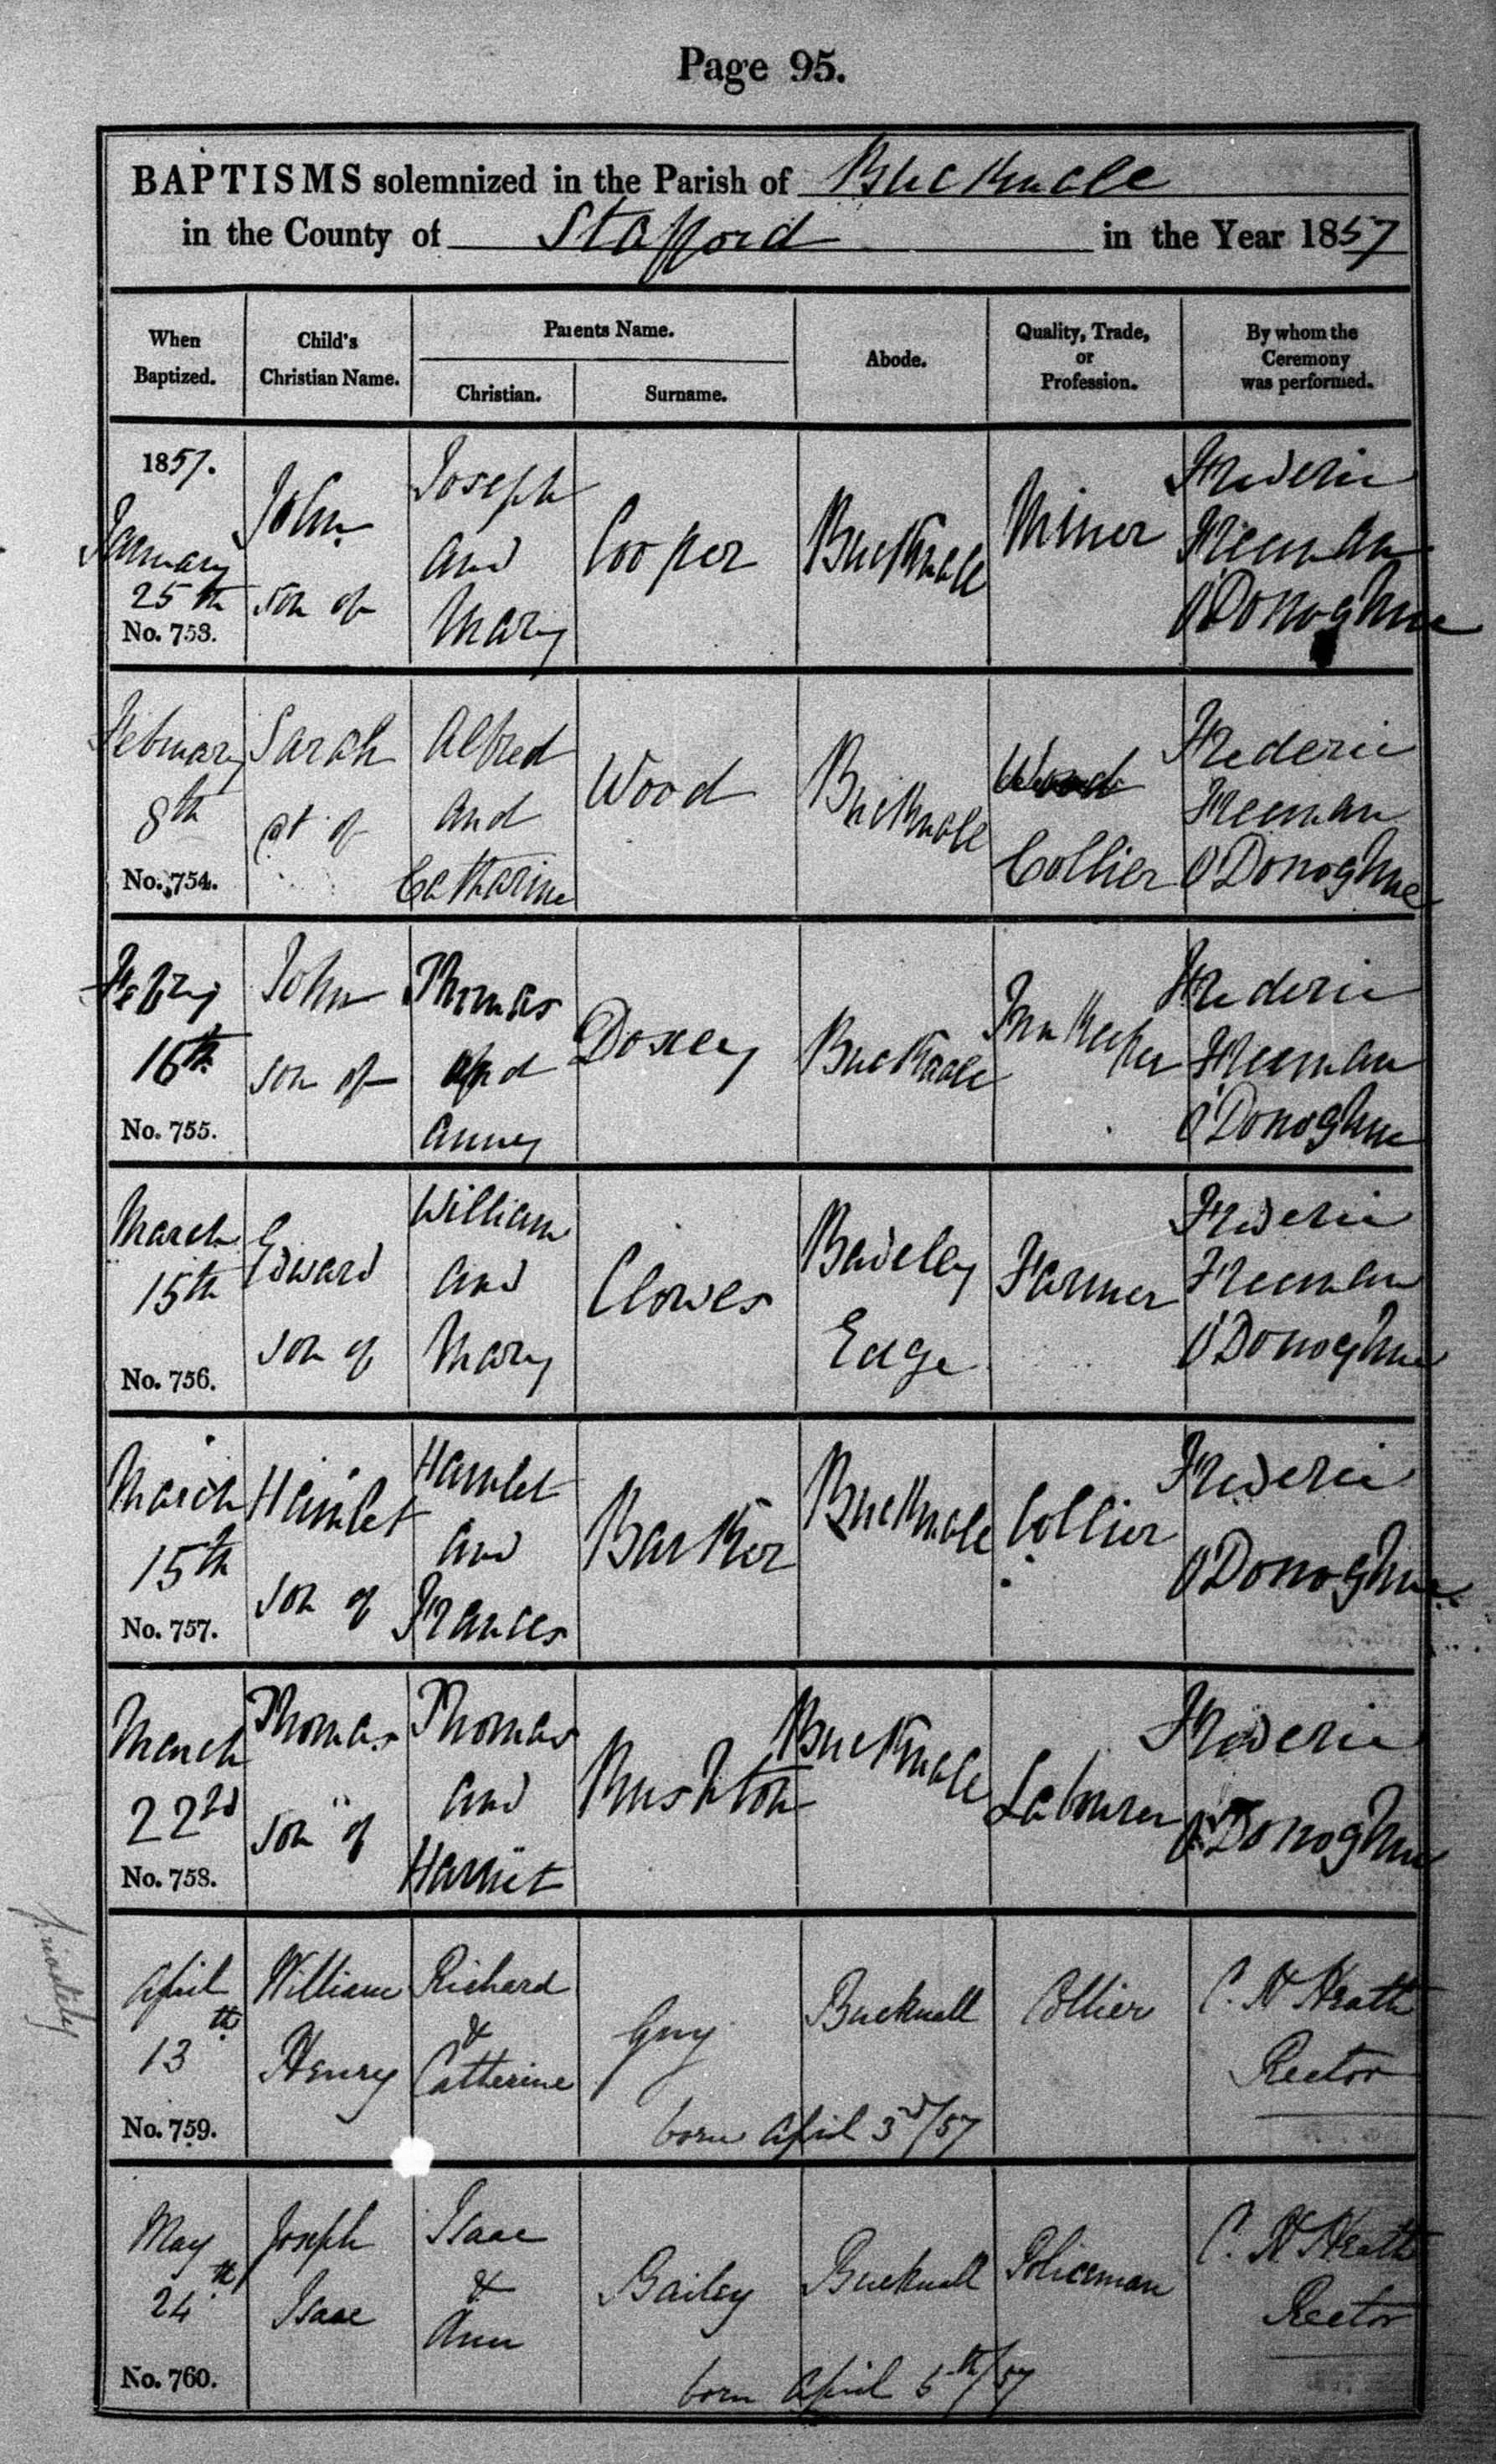 Page 95.
BAPTISMS solemnized in the Parish of Bucknall
in the County of Stafford in the Year 1857
When Baptized.
Child's Christian Name.
Parents Name.
Christian.
Surname.
Abode.
Quality, Trade, or Profession.
By whom the Ceremony was performed.
1857.
January
25th
No. 753.
John
son of
Joseph
and
Mary
Cooper
Bucknall
Miner
Frederic
Freeman
O'Donoghue
February
8th
No. 754.
Sarah
of
Alfred
and
Catharine
Wood
Bucknall
Wood
Collier
Frederic
Freeman
O'Donoghue
Febry
16th
No. 755.
John
son of
Thomas
and
Doxey
Bucknall
Inn Keeper
Frederic
Freeman
O'Donoghue
March
15th
No. 756.
Edward
son of
William
and
Mary
Clowes
Baveley
Edge
Farmer
Frederic
Freeman
O'Donoghue
March
15th
No. 757.
Hamlet
son of
Hamlet
and
Frances
Barker
Bucknall
Collier
Frederic
O'Donoghue
March
22nd
No. 758.
Thomas
son of
Thomas
and
Harriet
Rushton
Bucknall
Labourer
Frederic
O'Donoghue
privately
April
13th
No. 759.
William
Henry
Richard
&
Catherine
Guy
Bucknall
Collier
C. H Heath
Rector
born April 3rd/57
May
24th
No. 760.
Joseph
Isaac
Isaac
&
Ann
Bailey
Bucknall
Policeman
C. H Heath
Rector
born April 5th/57